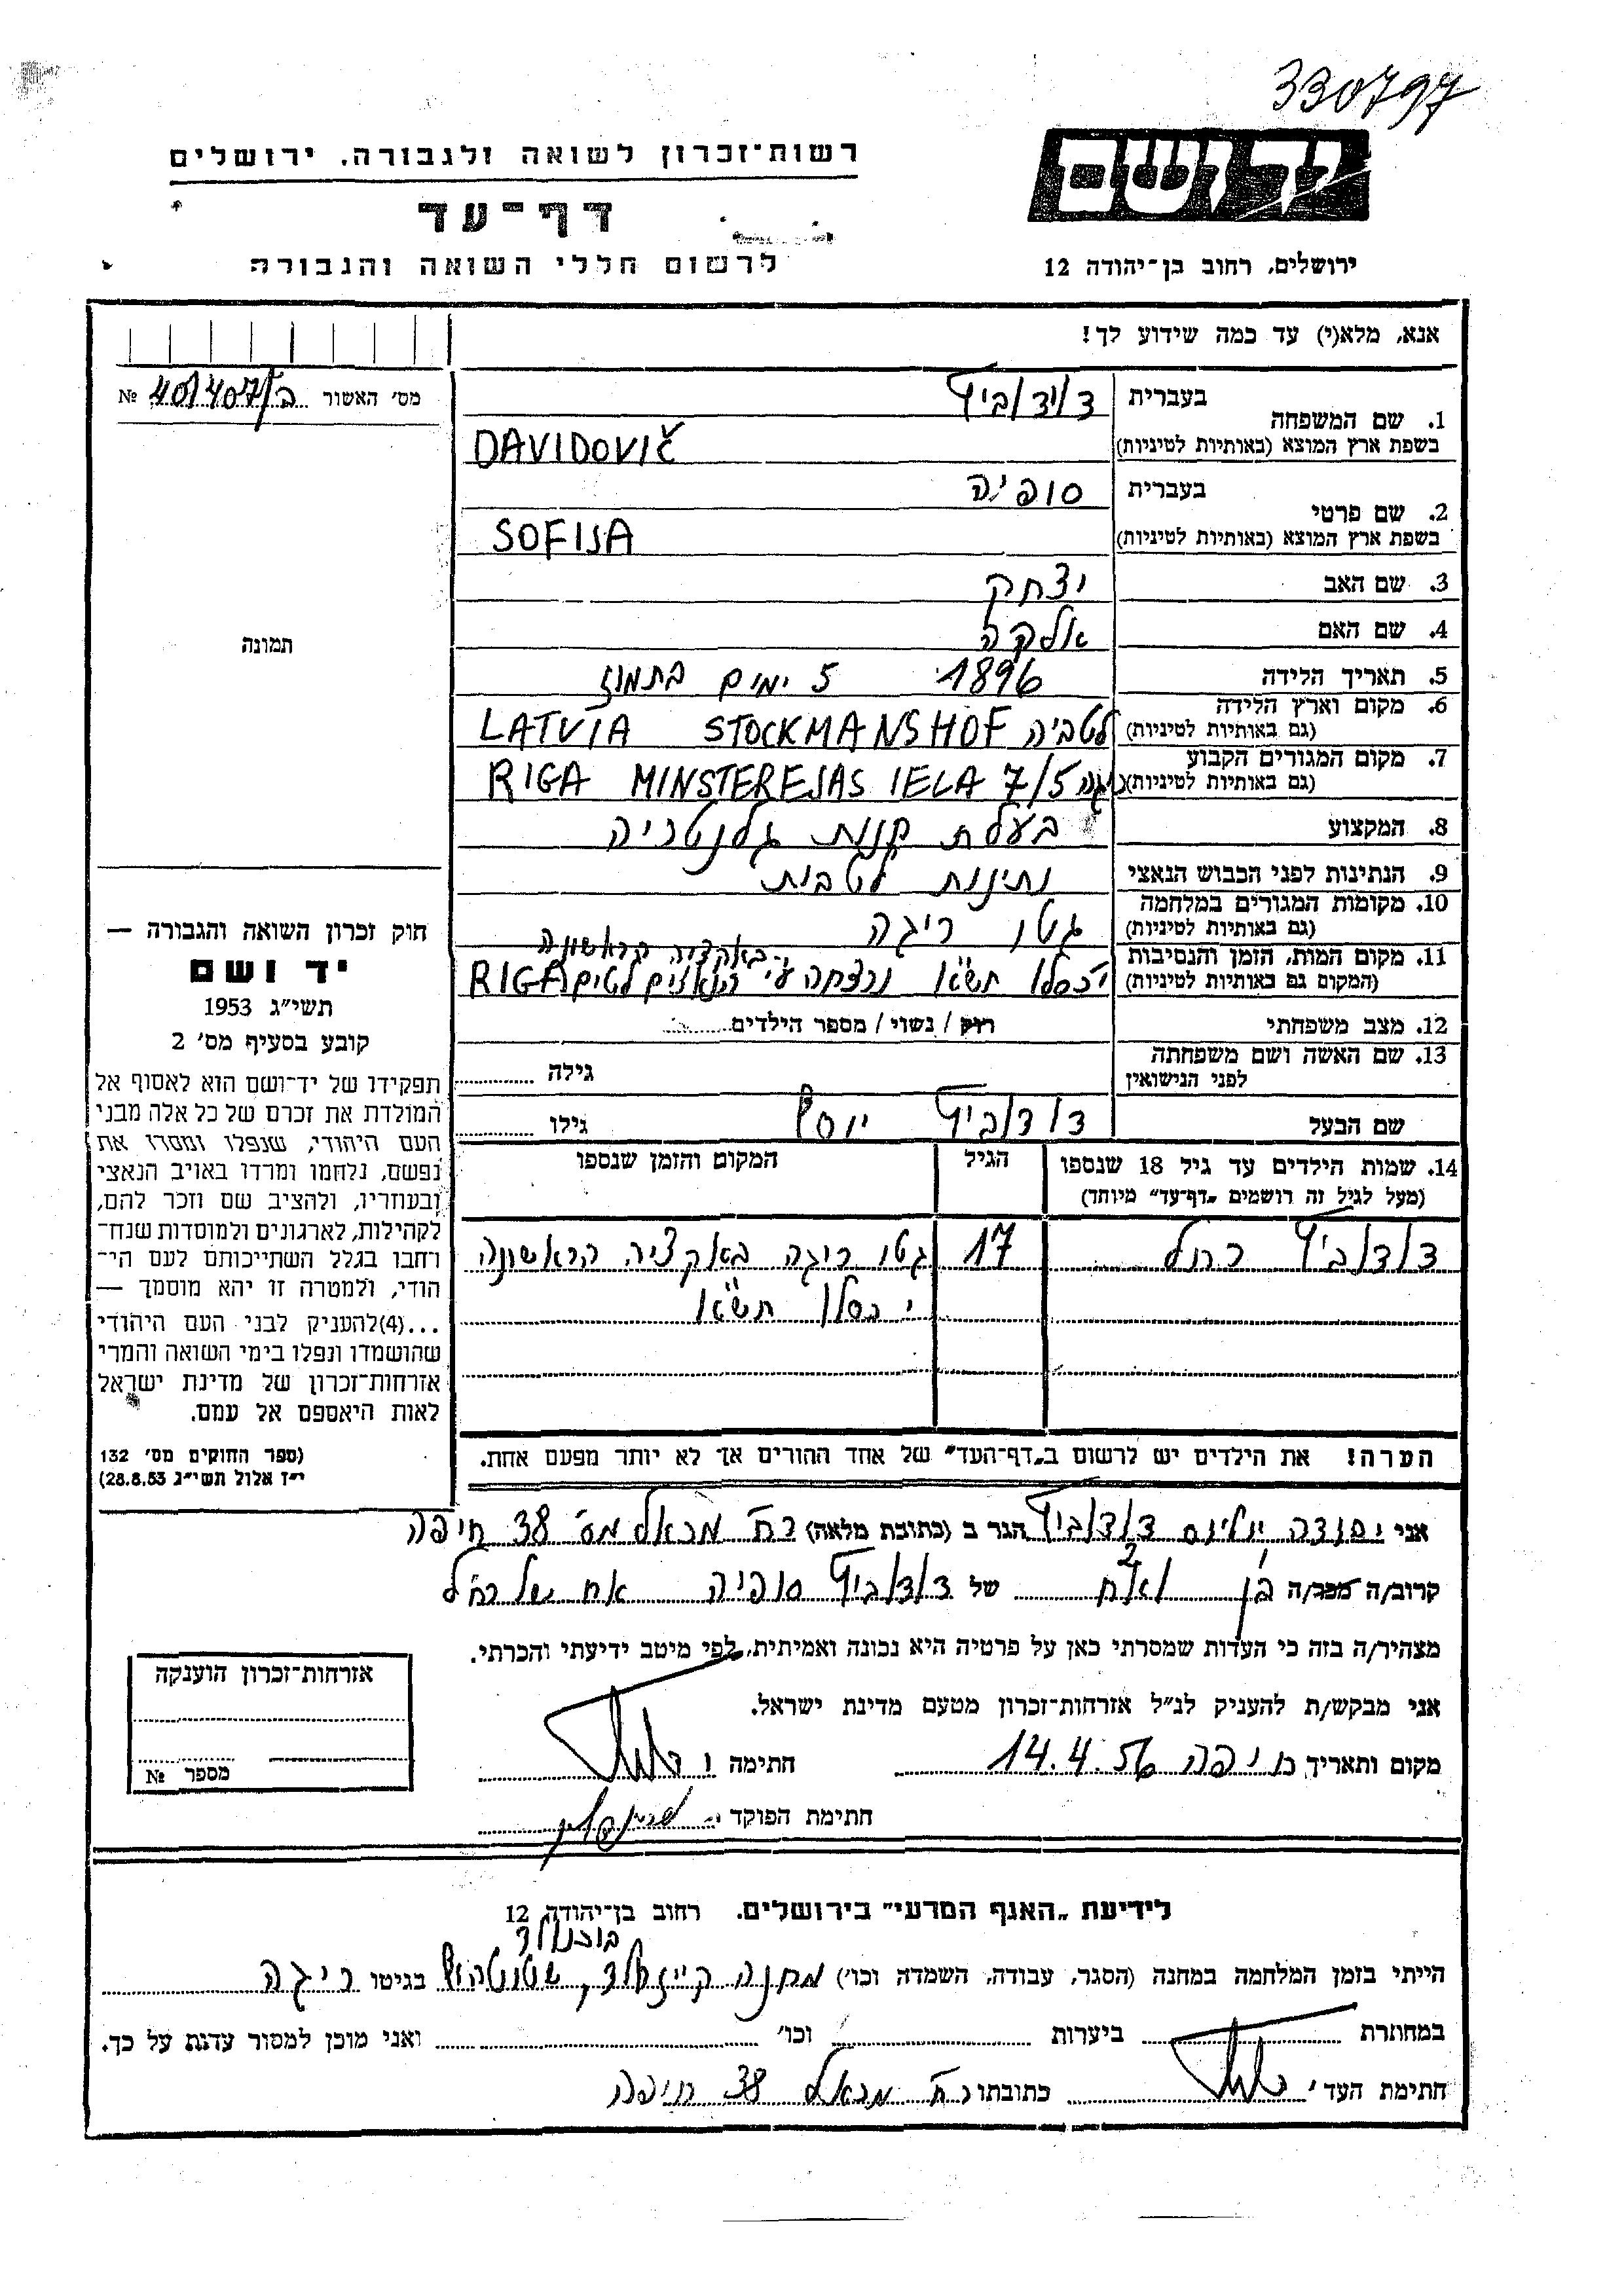 330797
יד ושם
רשות־זכרון לשואה ולגבורה, ירושלים
דף־עד
לרשום חללי השואה והגבורה
ירושלים, רחוב בן־יהודה 12
אנא, מלא(י) עד כמה שידוע לך!
מס׳ האשור 40/407/ב №
1. שם המשפחה
בעברית דוידוביץ
בשפת ארץ המוצא (באותיות לטיניות) DAVIDOVIČ
2. שם פרטי
בעברית סופיה
בשפת ארץ המוצא (באותיות לטיניות) SOFIJA
3. שם האב יצחק
4. שם האם אלקה
5. תאריך הלידה 1896 5 ימים בתמוז
6. מקום וארץ הלידה
(גם באותיות לטיניות) לטביה LATVIA STOCKMANSHOF
7. מקום המגורים הקבוע
(גם באותיות לטיניות) ריגה RIGA MINSTEREJAS IELA 7/5
8. המקצוע בעלת חנות גלנטריה
9. הנתינות לפני הכבוש הנאצי נתינות לטבית
10. מקומות המגורים במלחמה
(גם באותיות לטיניות) גטו ריגה
11. מקום המות, הזמן והנסיבות
באקציה הראשונה
(המקום גם באותיות לטיניות) י׳ כסלו תש"א נרצחה ע"י הנאצים לטים RIGA
12. מצב משפחתי רווק / נשוי / מספר הילדים
13. שם האשה ושם משפחתה
לפני הנישואין גילה
שם הבעל דודוביץ יוסף גילו
14. שמות הילדים עד גיל 18 שנספו
(מעל לגיל זה רושמים „דף־עד" מיוחד)
הגיל
המקום והזמן שנספו
דודוביץ רחל 17 גטו ריגה באקציה הראשונה
י כסלו תש"א
תמונה
חוק זכרון השואה והגבורה —
יד ושם
תשי״ג 1953
קובע בסעיף מס׳ 2
תפקידו של יד־ושם הוא לאסוף אל
המולדת את זכרם של כל אלה מבני
העם היהודי, שנפלו ומסרו את
נפשם, נלחמו ומרדו באויב הנאצי
ובעוזריו, ולהציב שם וזכר להם,
לקהילות, לארגונים ולמוסדות שנח־
רחבו בגלל השתייכותם לעם הי־
הודי, ולמטרה זו יהא מוסמך —
...(4) להעניק לבני העם היהודי
שהושמדו ונפלו בימי השואה והמרי
אזרחות־זכרון של מדינת ישראל
לאות היאספם אל עמם.
(ספר החוקים מס׳ 132
י״ז אלול תשי״ג 28.8.53)
הערה! את הילדים יש לרשום ב„דף־העד" של אחד ההורים אך לא יותר מפעם אחת.
אני יהודה יוליוס דודוביץ הגר ב (כתובת מלאה) רח׳ מסאל מס׳ 38 חיפה
קרוב/ה מכר/ה בן ואח של דודוביץ סופיה אח של רחל
מצהיר/ה בזה כי העדות שמסרתי כאן על פרטיה היא נכונה ואמיתית, לפי מיטב ידיעתי והכרתי.
אני מבקש/ת להעניק לנ״ל אזרחות־זכרון מטעם מדינת ישראל.
מקום ותאריך חיפה 14.4.56 חתימה
חתימת הפוקד
אזרחות־זכרון הוענקה
מספר №
לידיעת „האגף המדעי" בירושלים. רחוב בן־יהודה 12
בוכנולד
הייתי בזמן המלחמה במחנה (הסגר, עבודה, השמדה וכו׳) מחנה קייזרלד, שטוטהוף בגיטו ריגה
במחתרת ביערות וכו׳ ואני מוכן למסור עדות על כך.
חתימת העד כתובתו רח׳ מסאל 38 חיפה